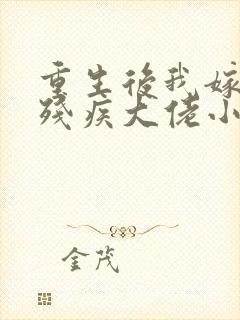 重生後我嫁
殘疾大佬小
金茂